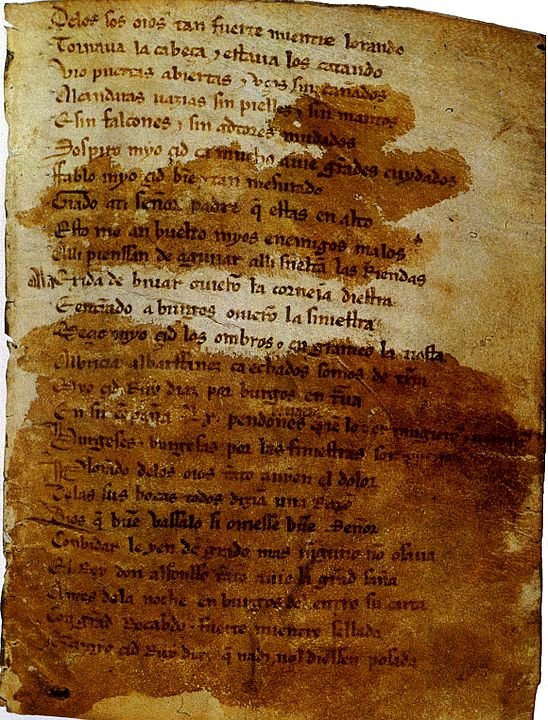 Delos sos oios tan fuerte mientre lorando
Tornava la cabeça ⁊ estava los catando
Vio puertas abiertas ⁊ vços sin cañados
Alcandaras uazias sin pielles ⁊ sin mantos
E sin falcones ⁊ sin adtores mudados
Sospiro myo çid ca mucho auie grãdes cuydados
ffablo myo çid biẽ ⁊ tan mesurado
Grado ati señor padre q̃ estas en alto
Esto me an buelto myos enemigos malos
Alli pienssan de aguijar alli sueltã las Riendas
Ala Exida de biuar ouierõ la corneja diestra
E entrãdo a burgos ouierõ la siniestra
Meçio myo çid los ombros ⁊ en grameo la tiesta
Albricia albarffanez ca echados somos de trã
Myo çid Ruy diaz por burgos en trãua
En su cõpaña Lx pendones
Burgeses ⁊ burgesas por las finiestras son
Plorando delos oios tãto auyen el dolor
Delas sus bocas todos dizian una Razõ
Dios q̃ buẽ vassalo si ouiesse buẽ Señor
Conbidar le yen de grado mas ninguno nõ osaua
El Rey don alfonsso tãto auie la grãd saña
Antes dela noche en burgos del entro su carta
Con grãd Recabdo ⁊ fuerte mientre sellada
çid Ruy diaz q̃ nadi nol diessen posada